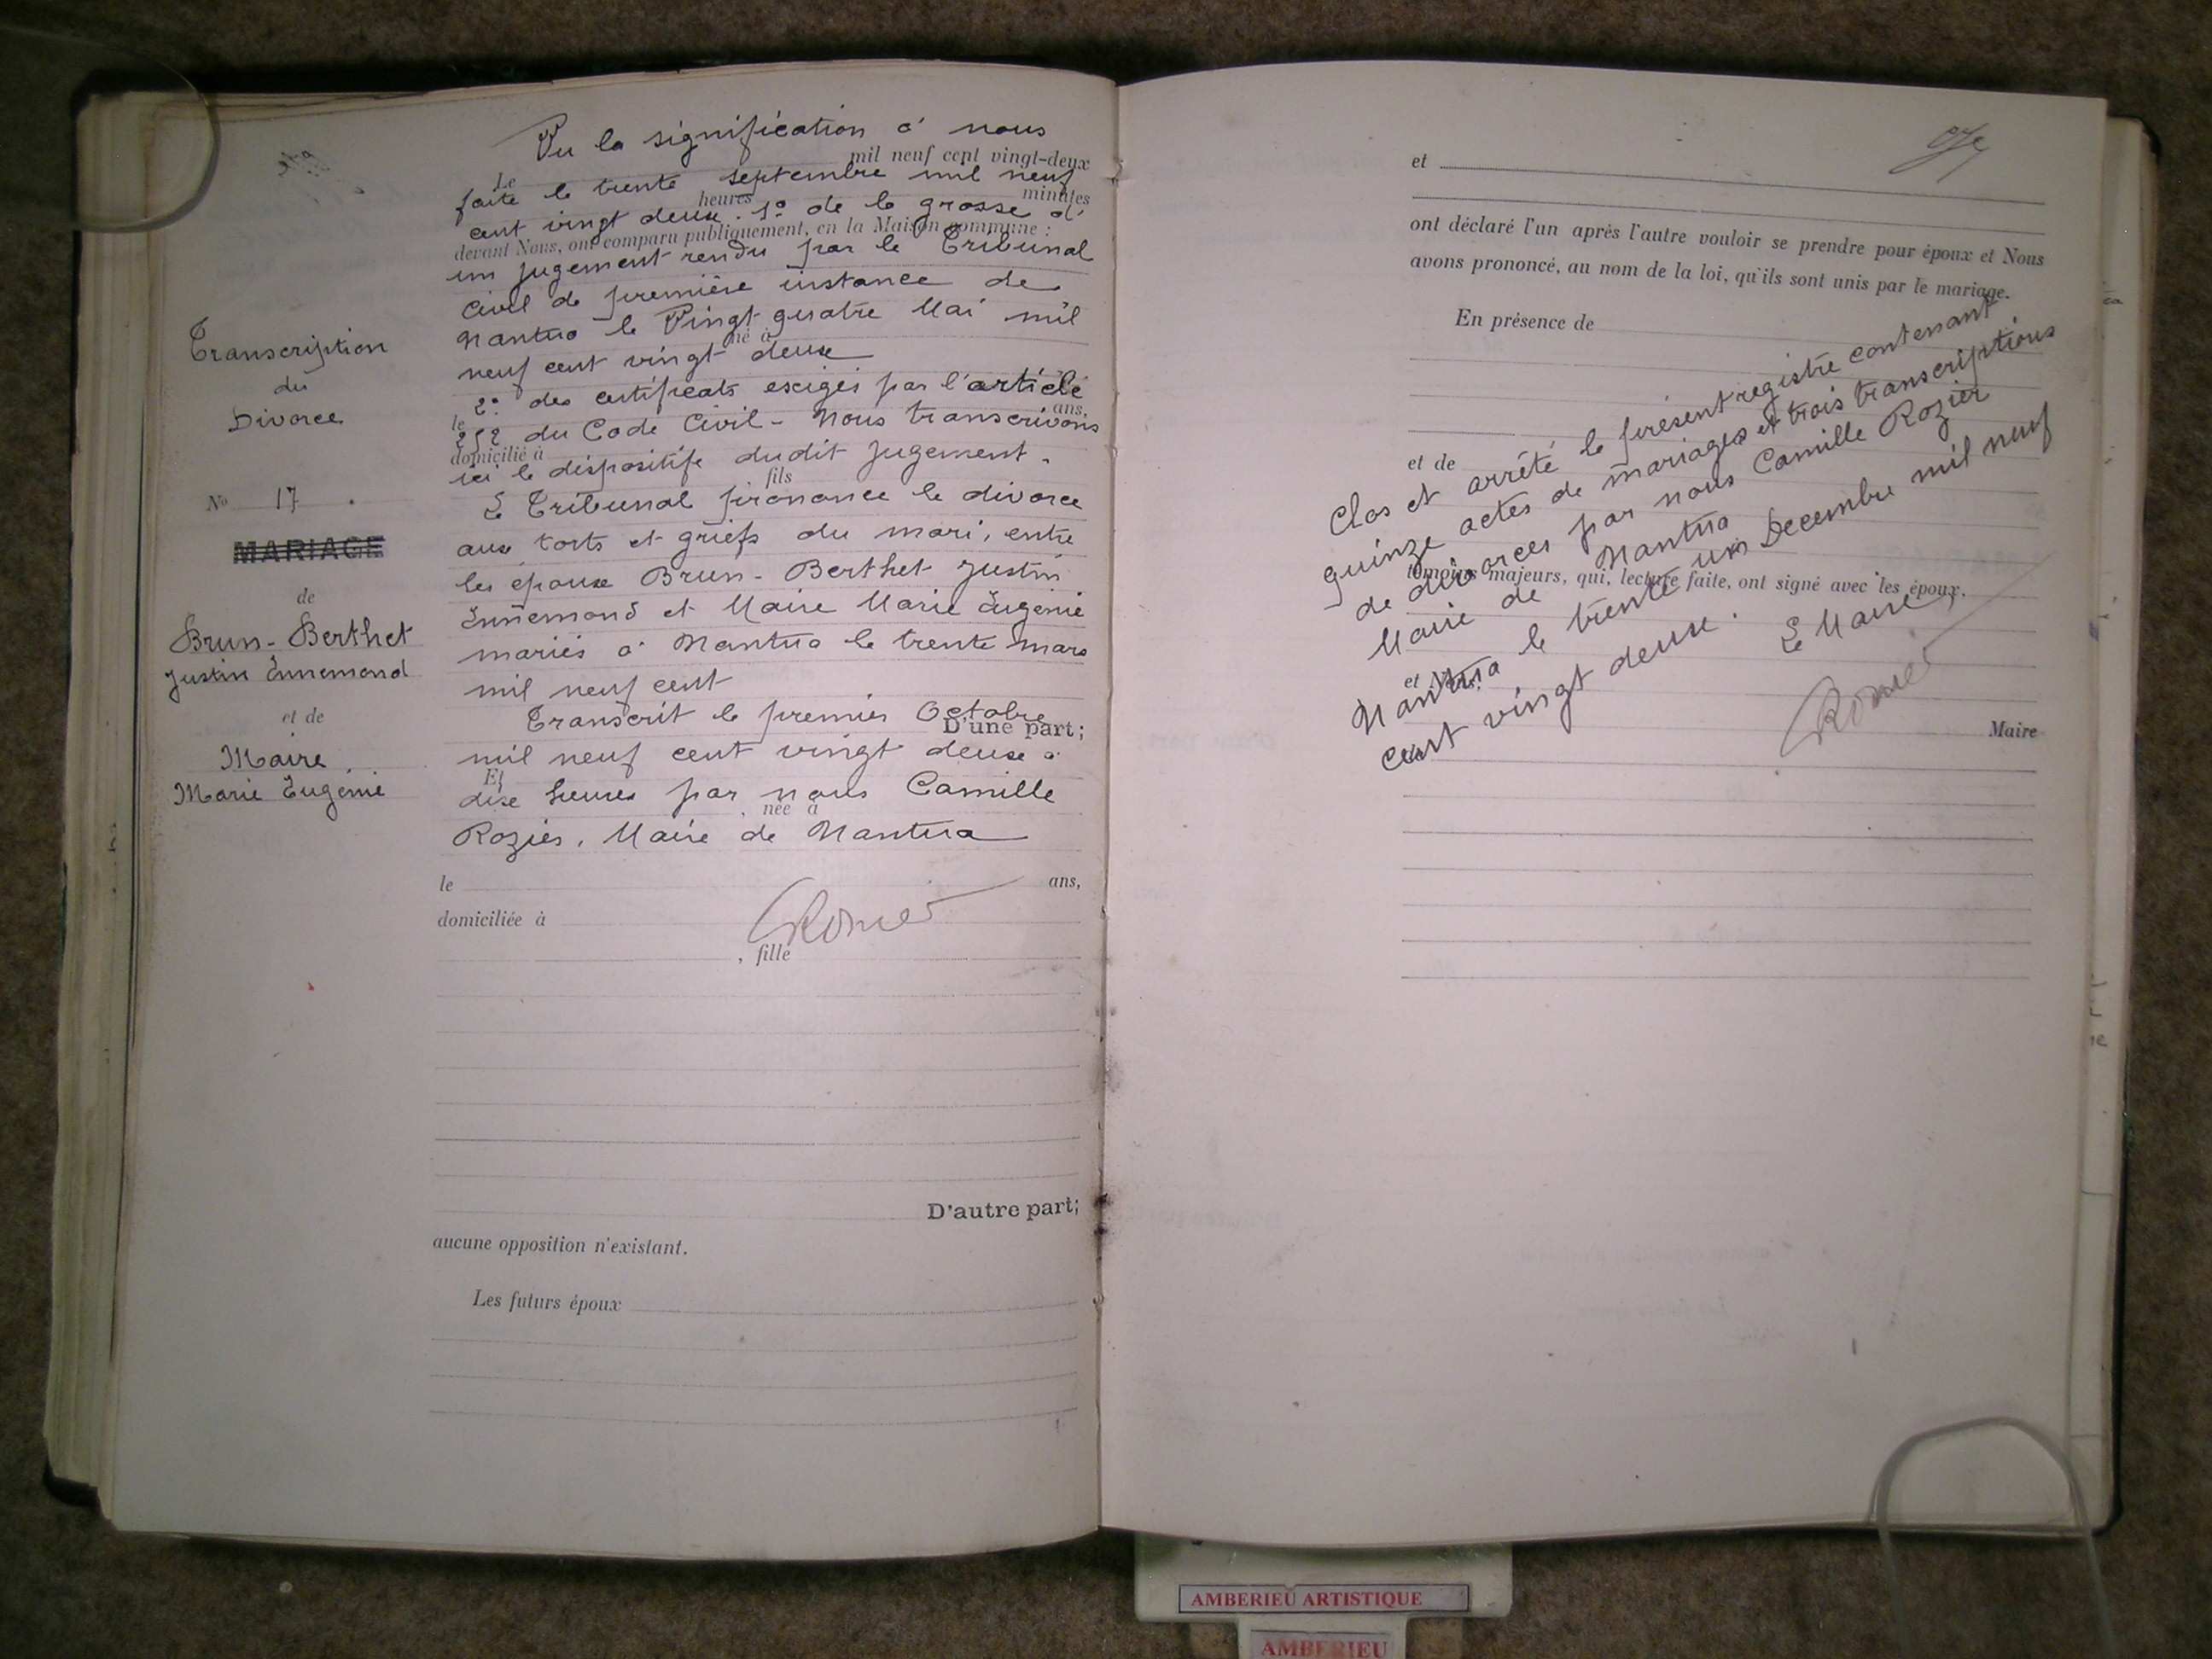 Transcription
du
Divorce
No 17.
MARIAGE
de
Brun-Berthet
Justin Ennemond
et de
Maire
Marie Eugénie
Vu la signification à nous
mil neuf cent vingt-deux
Le
faite le trente septembre mil neuf
heures minutes
cent vingt deux. 1º de la grosse d'
devant Nous, ont comparu publiquement, en la Maison commune :
un jugement rendu par le Tribunal
Civil de première instance de
Nantua le Vingt quatre Mai mil
né à
neuf cent vingt deux
2º des certificats exigés par l'article
le ans,
252 du Code Civil - Nous transcrivons
domicilié à
ici le dispositife dudit Jugement.
fils
Le Tribunal prononce le divorce
aux torts et griefs du mari, entre
les époux Brun-Berthet Justin
Ennemond et Maire Marie Eugénie
mariés à Nantua le trente mars
mil neuf cent
Transcrit le premier Octobre
D'une part;
mil neuf cent vingt deux à
Et
dix heures par nous Camille
, née à
Rozier, Maire de Nantua
le ans,
domiciliée à
CRozier
, fille
D'autre part;
aucune opposition n'existant.
Les futurs époux
et
ont déclaré l'un après l'autre vouloir se prendre pour époux et Nous
avons prononcé, au nom de la loi, qu'ils sont unis par le mariage.
En présence de
et de
Clos et arrêté le présent registre contenant
quinze actes de mariages et trois transcriptions
de divorces par nous Camille Rozier
témoins majeurs, qui, lecture faite, ont signé avec les époux,
Maire de Nantua
et Nous.
Nantua le trente un Decembre mil neuf
cent vingt deux.
Le Maire,
CRozier
Maire
AMBERIEU ARTISTIQUE
AMBERIEU